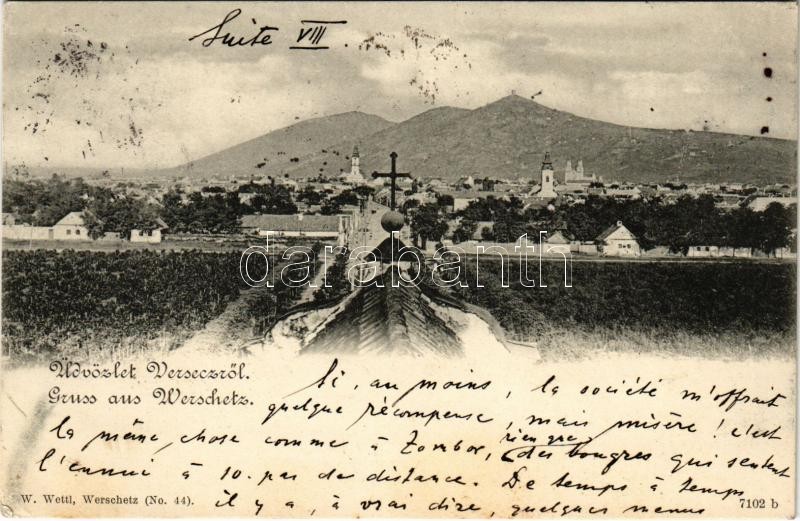 Suite VIII.
darabanth
Üdvözlet Verseczről.
Gruss aus Werschetz.
Si, au moins, la société m'offrait
quelque récompense, mais misère! c'est
la même chose comme à Zombor, rien que des bougres qui sentent
l'ennui à 10. pas de distance. De temps à temps
il y a, à vrai dire, quelques menus
W. Wettl, Werschetz (No. 44).
7102 b